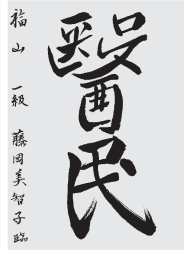 醫民
福山 一級 藤岡美智子臨